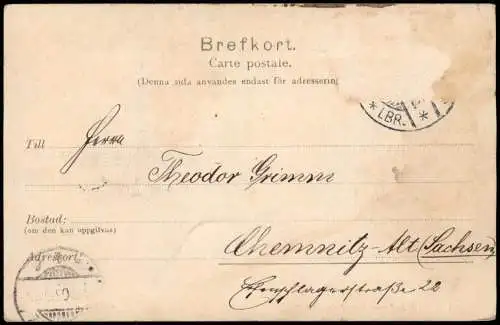 Brefkort.
Carte postale.
(Denna sida användes endast för adressering
* LBR. *
Till Herrn
Theodor Grimm
Bostad:
(om den kan uppgifvas)
Adressort: Chemnitz-Alt (Sachsen)
Straße 22